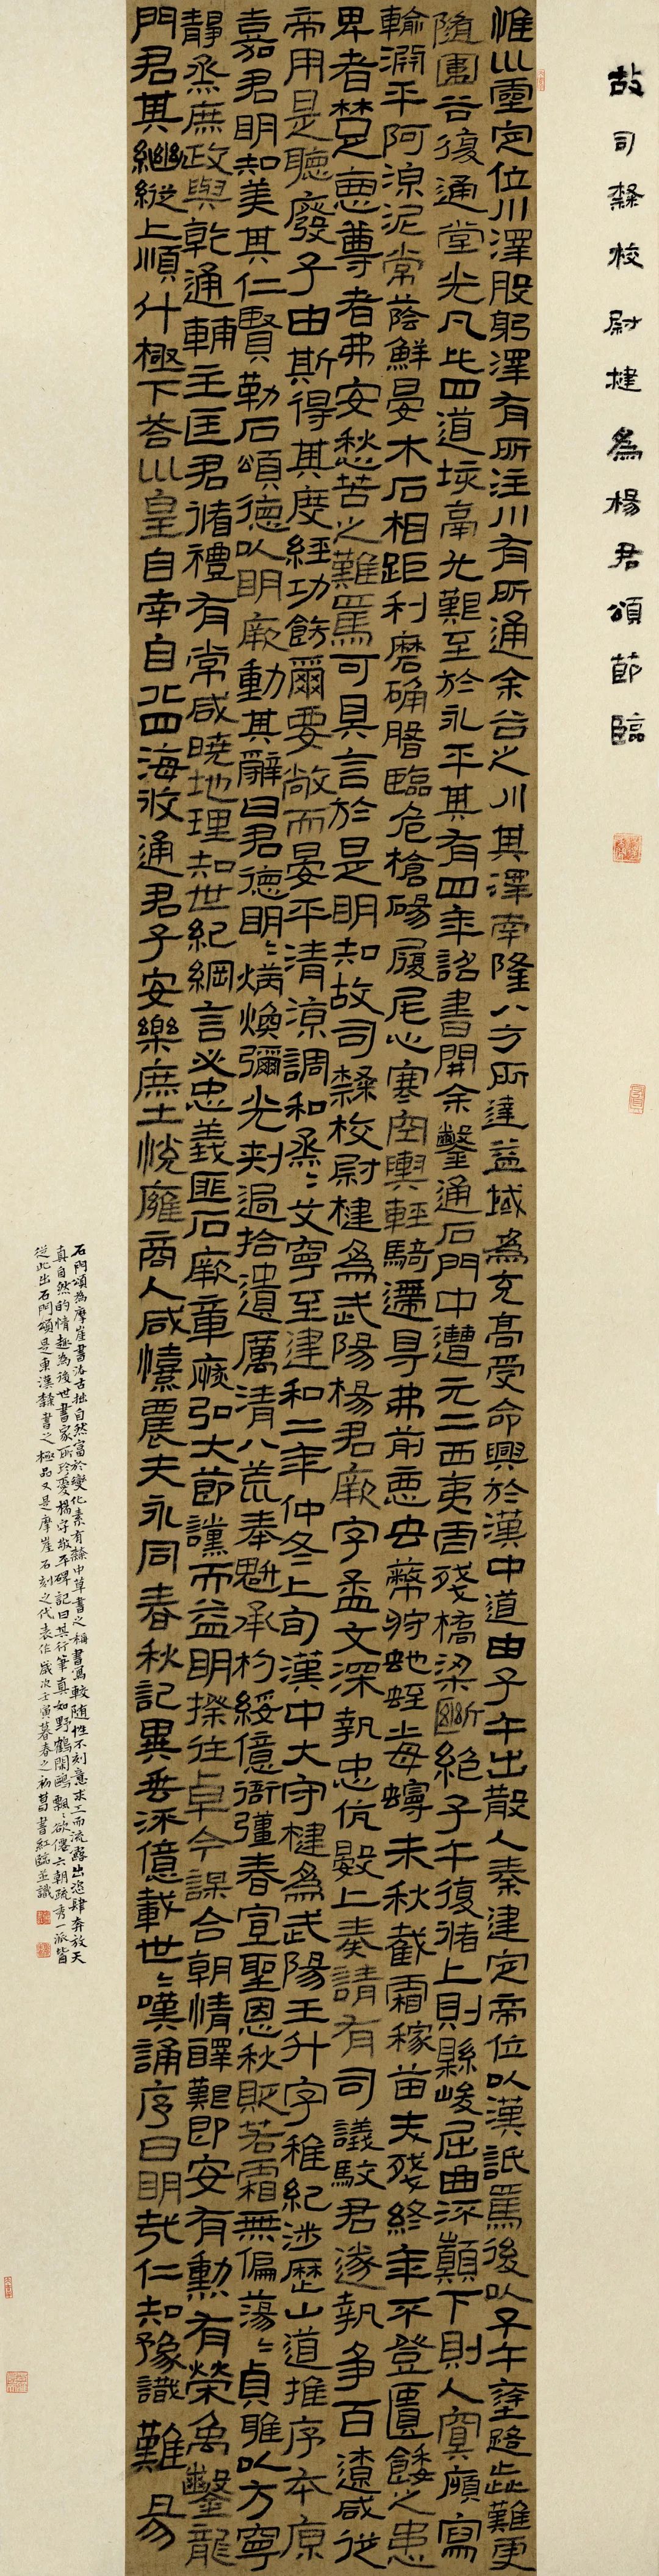 故司隸校尉楗為楊君頌節臨
惟巛靈定位川澤股躬澤有所注川有所通余谷之川其澤南隆八方所達益域為充高受命興於漢中道由子午出散入秦建定帝位以漢詆焉後以子午塗路歰難更
隨圍谷復通堂光凡此四道垓鬲尤艱至於永平其有四年詔書開余鑿通石門中遭元二西夷虐殘橋梁斷絕子午復循上則縣峻屈曲流顛下則入冥廎寫
輸淵平阿湶泥常蔭鮮晏木石相距利磨确磐臨危槍碭履尾心寒空輿輕騎遰㝵弗前惡虫蔽狩虵蛭毒蟃未秋截霜稼苗夭殘終年不登匱餧之患
卑者楚惡尊者弗安愁苦之難焉可具言於是明知故司隸校尉楗為武陽楊君厥字孟文深執忠伉數上奏請有司議駮君遂執爭百遼咸從
帝用是聽廢子由斯得其度經功飭爾要敞而晏平清涼調和烝〻艾寧至建和二年仲冬上旬漢中大守楗為武陽王升字稚紀涉歷山道推序本原
嘉君明知美其仁賢勒石頌德以明厥勳其辭曰君德明〻炳煥彌光刺過拾遺厲清八荒奉魁承杓綏億衙彊春宣聖恩秋貶若霜無偏蕩〻貞雅以方寧
靜烝庶政與乾通輔主匡君循禮有常咸曉地理知世紀綱言必忠義匪石厥章恢弘大節讜而益明揆往卓今謀合朝情醳艱即安有勳有榮禹鑿龍
門君其繼縱上順斗極下荅巛皇自南自北四海攸通君子安樂庶士悅雍商人咸憘農夫永同春秋記異垂流億載世〻嘆誦序曰明哉仁知豫識難易
石門頌為摩崖書法古拙自然富於變化素有隸中草書之稱書寫較隨性不刻意求工而流露出恣肆奔放天
真自然的情趣為後世書家所珍愛楊守敬平碑記曰其行筆真如野鶴閑鷗飄〻欲僊六朝疏秀一派皆
從此出石門頌是東漢隸書之極品又是摩崖石刻之代表作歲次壬寅暮春之初莒書紅臨並識